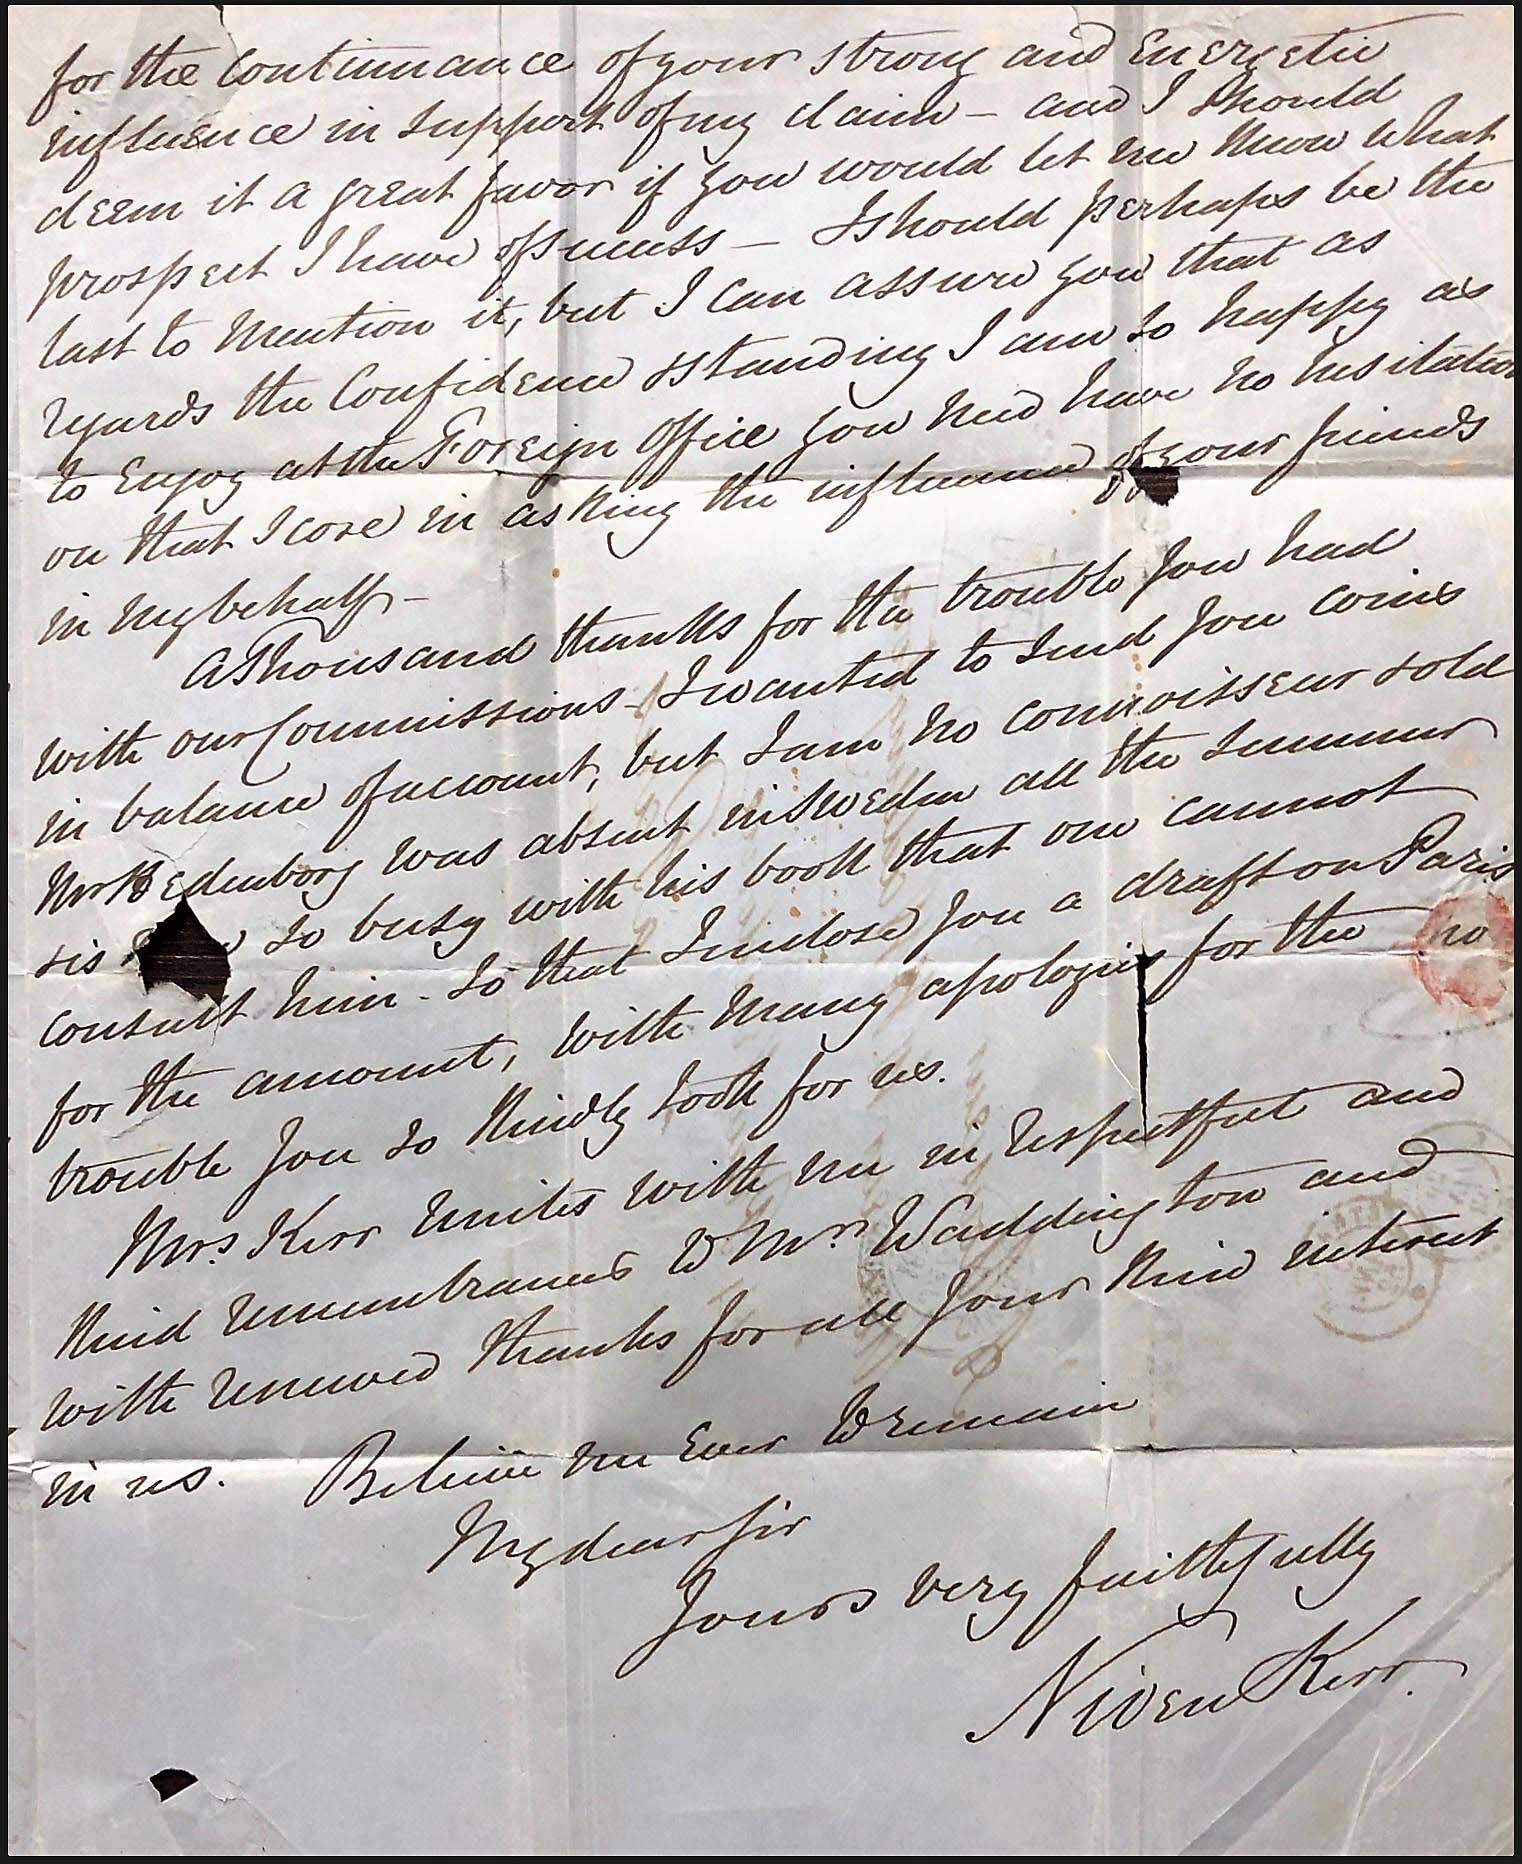 for the continuance of your strong and Energetic
influence in support of my claim – and I should
deem it a great favor if you would let me know what
prospect I have of success – I should perhaps be the
last to mention it, but I can assure you that as
regards the Confidence & standing I am so happy as
to Enjoy at the Foreign Office you need have no hesitation
on that score in asking the influence of your friends
in my behalf –
A Thousand thanks for the trouble you had
with our Commissions – I wanted to send you coins
in balance of account, but I am no connoisseur & old
Mr Hedenborg was absent in Sweden all the summer
& is so busy with his book that one cannot
consult him – so that I inclose you a draft on Paris
for the amount, with many apologies for the
trouble you so kindly took for us.
Mrs. Kerr unites with me in respectful and
kind remembrances to Mrs Waddington and
with renewed thanks for all your kind interest
in us. Believe me Ever to remain
My dear Sir
Yours very faithfully
Niven Kerr.